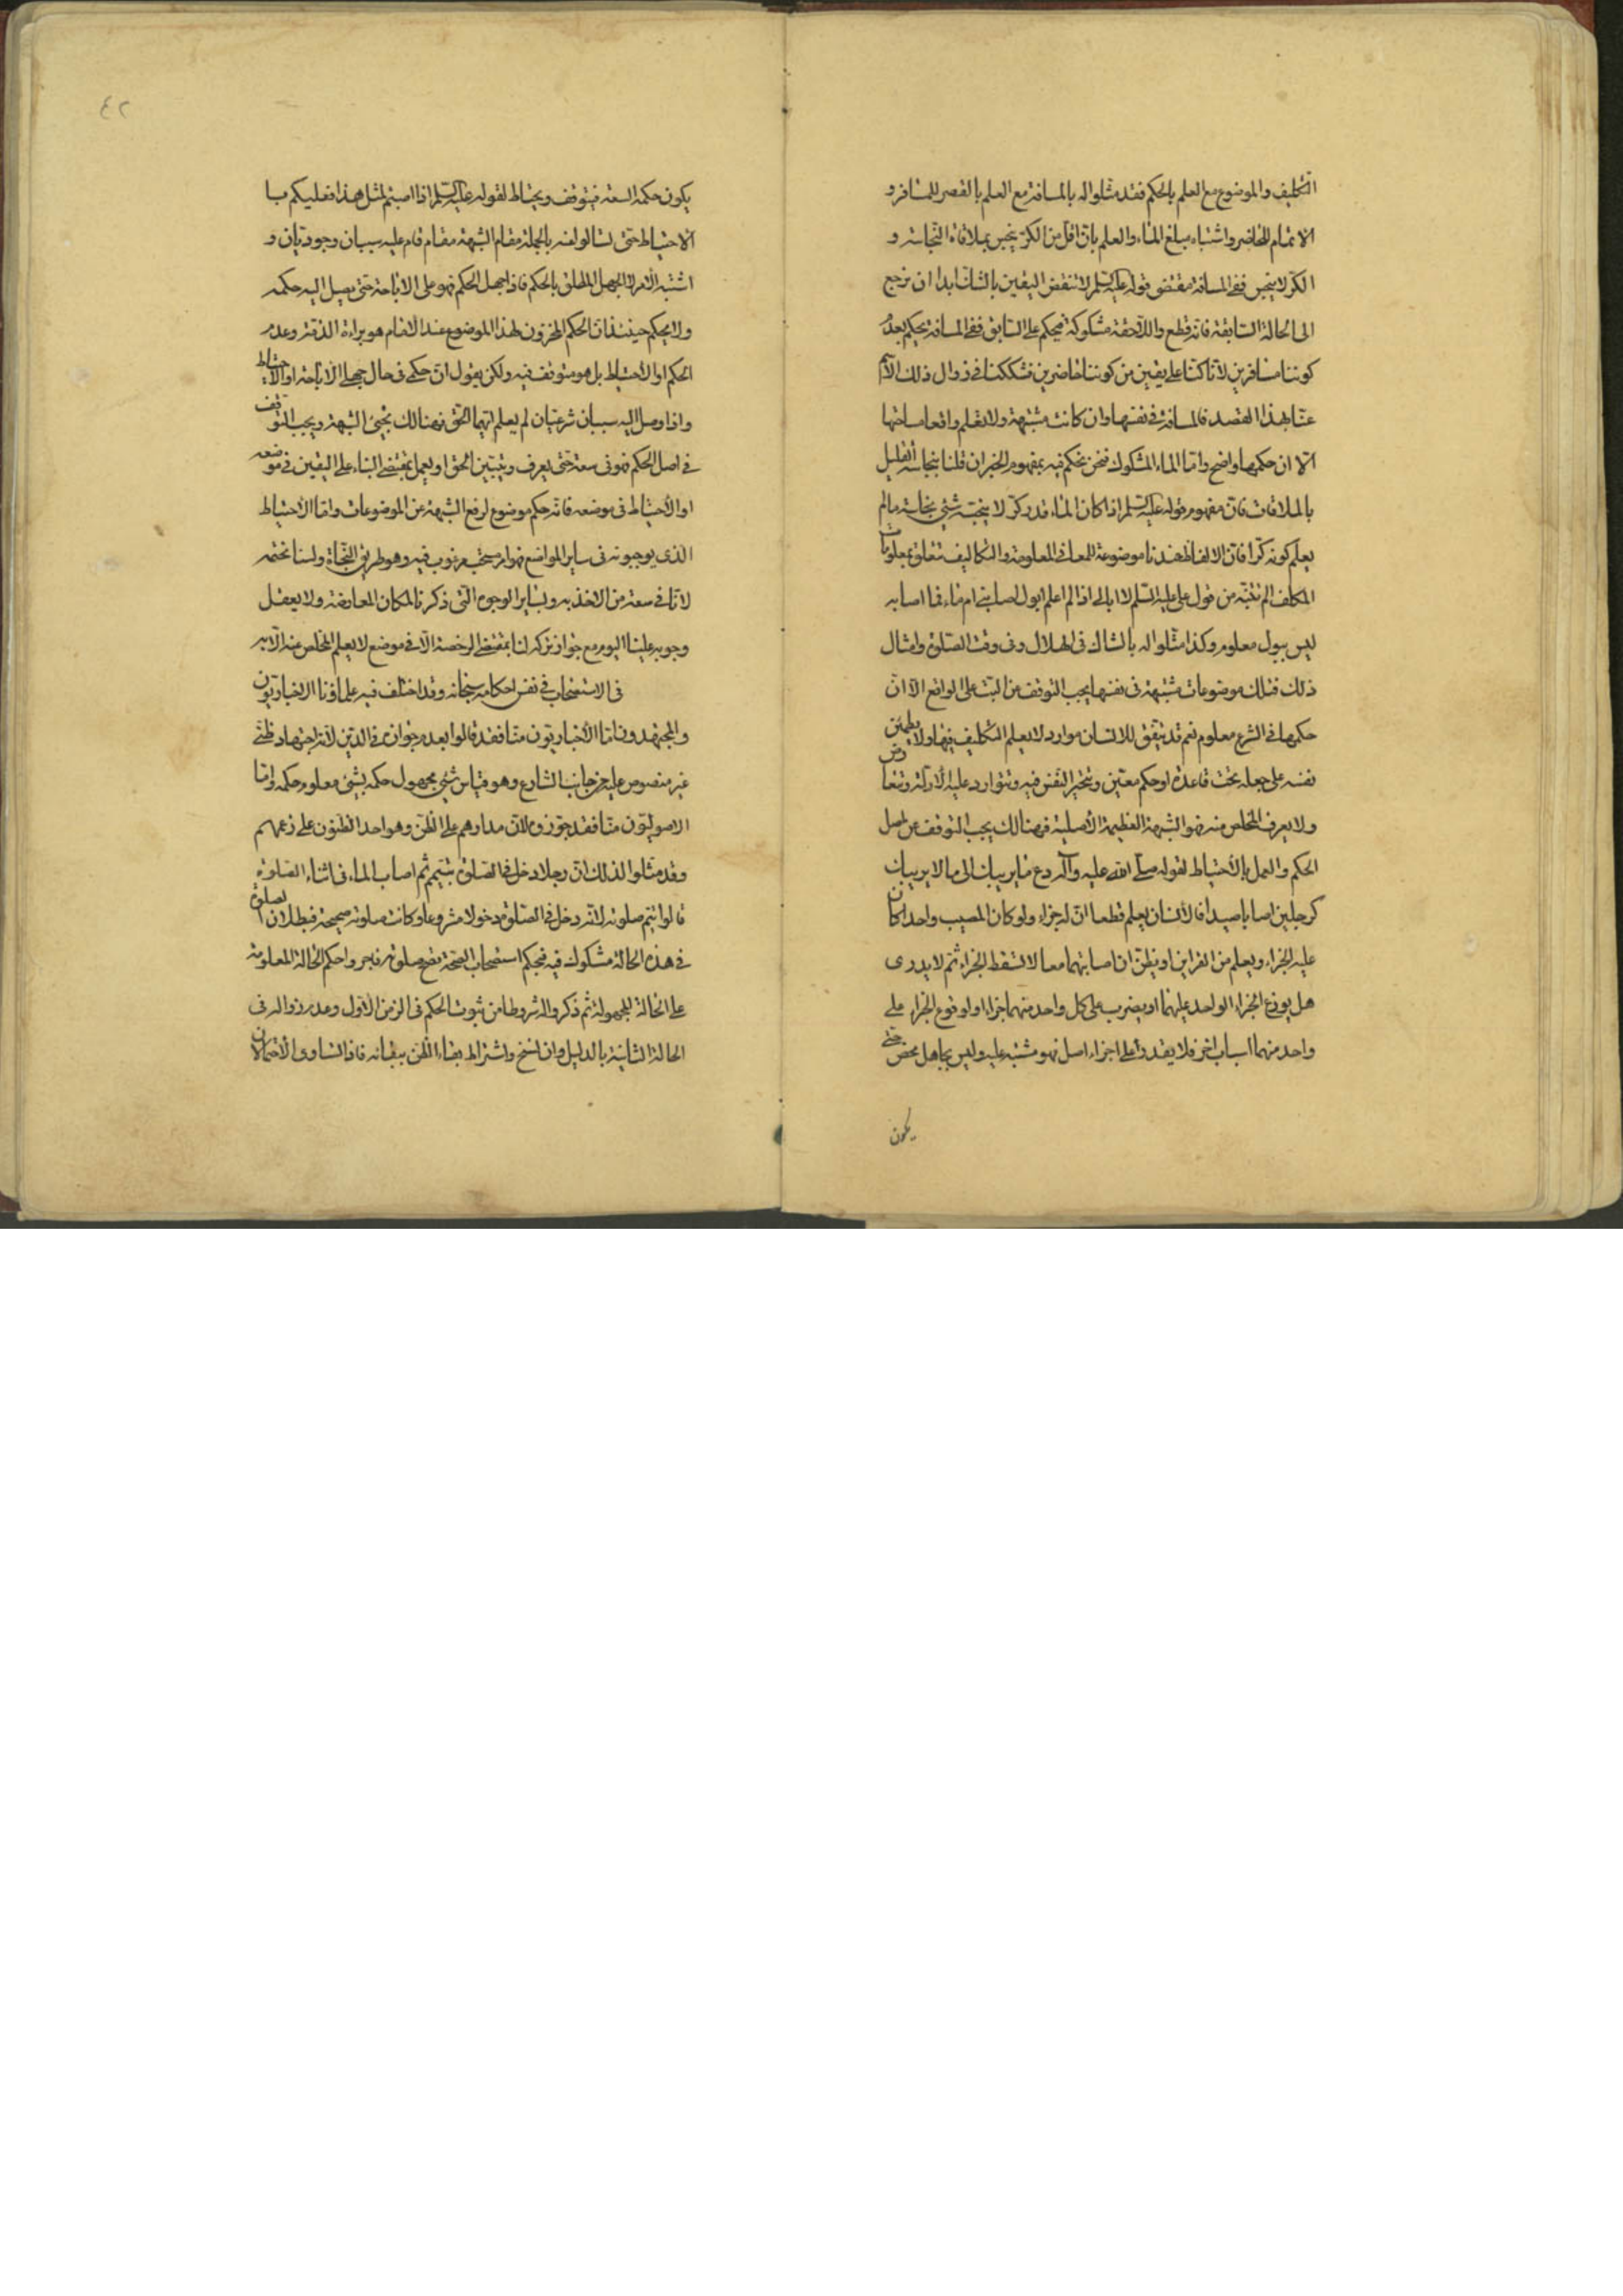 التكليف والموضوع مع العلم بالحكم فقد مثلوا له بالمسافة مع العلم بالقصر للمسافر و
الاتمام للحاضر واشتباه مبلغ الماء والعلم بان اقل من الكر ينجس بملاقاة النجاسة و
الكر لا ينجس ففي المسافة مقتضى قوله عليه السلم لا تنقض اليقين بالشك ابدا ان نرجع
الى الحالة السابقة فانه قطع واللاحقة مشكوكة فيحكم على السابق ففي المسافة يحكم بعدم
كوننا مسافرين لانا كنا على يقين من كوننا حاضرين فشككنا في زوال ذلك الاسم
عنا بهذا القصد فالمسافة في نفسها وان كانت مشتبهة ولا نعلم واقعا مساحتها
الا ان حكمها واضح واما الماء المشكوك فنحن نحكم فيه بمفهوم الخبر ان قلنا بنجاسة القليل
بالملاقات فان مفهوم قوله عليه السلم اذا كان الماء قدر كر لا ينجسه شئ نجاسة مالم
يعلم كونه كرا فان الالفاظ عندنا موضوعة للمعاني المعلومة والتكاليف تتعلق بمعلومات
المكلف الم تنتبه من قول علي عليه السلم لا ابالي اذا لم اعلم ابول اصابني ام ماء فما اصابه
ليس ببول معلوم وكذا مثلوا له بالشك في الهلال وفي وقت الصلوة وامثال
ذلك فتلك موضوعات مشتبهة في نفسها يجب التوقف عن البت على الواقع الا ان
حكمها في الشرع معلوم نعم قد يتفق للانسان موارد لا يعلم التكليف فيها ولا يطمئن
نفسه على جعله تحت قاعدة او حكم معين ويتحير النفس فيه وتتوارد عليه الادلة وتتعارض
ولا يعرف المخلص منه فهو الشبهة العظيمة الاصلية فهنالك يجب التوقف عن اصل
الحكم والعمل بالاحتياط لقوله صلى الله عليه وآله دع ما يريبك الى ما لا يريبك
كرجلين اصابا صيدا فالانسان يعلم قطعا ان له جزاء ولو كان المصيب واحدا كان
عليه الجزاء ويعلم من القراين او يظن ان اصابتهما معا لا تسقط الجزاء ثم لا يدرى
هل يوزع الجزاء الواحد عليهما او يضرب على كل واحد منهما جزاء او لوقوع الجزاء على
واحد منهما اسباب اخر فلا يقدر على اجزاء اصل فهو مشتبه عليه وليس بجاهل محض حتى
يكون
٤٢
يكون حكمه السعة فيتوقف ويحتاط لقوله عليه السلم اذا اصبتم لمثل هذا فعليكم با
الاحتياط حتى تسالوا عنه بالجملة مقام الشبهة مقام قام عليه سببان وجوديان و
اشتبه الامر لا الجهل المطلق بالحكم فاذا جهل الحكم فهو على الاباحة حتى يصل اليه حكمه
ولا يحكم حينئذ ان الحكم المخزون لهذا الموضوع عند الامام هو براءة الذمة وعدم
الحكم او الاحتياط بل هو متوقف فيه ولكن يقول ان حكمي في حال جهلي الاباحة او الاحتياط
واذا وصل اليه سببان شرعيان لم يعلم ايهما الحق فهنالك تجئ الشبهة ويجب التوقف
في اصل الحكم فهو في سعة حتى يعرف ويتبين الحق او يعمل بمقتضى البناء على اليقين في موضعه
او الاحتياط في موضعه فانه حكم موضوع لرفع الشبهة عن الموضوعات واما الاحتياط
الذى يوجبونه في ساير المواضع فهو امر مستحب مرغوب فيه وهو طريق النجاة ولسنا نحتمه
لانا في سعة من الاخذ به وبساير الوجوه التي ذكرنا لمكان المعارضة ولا يعقل
وجوبه علينا اليوم مع جواز تركه لنا بمقتضى الرخصة الا في موضع لا يعلم المخلص عنه الا به
في الاستصحاب في نفس احكامه سبحانه وقد اختلف فيه علماؤنا الاخباريون
والمجتهدون اما الاخباريون منا فقد قالوا بعدم جوازه في الدين لانه اجتهاد ظني
غير منصوص عليه من جانب الشارع وهو قياس شئ مجهول حكمه بشئ معلوم حكمه واما
الاصوليون منا فقد جوزوه لان مدارهم على الظن وهو احد الظنون على زعمهم
وقد مثلوا لذلك ان رجلا دخل في الصلوة بتيمم ثم اصاب الماء في اثناء الصلوة
قالوا يتم صلوته لانه دخل في الصلوة دخولا مشروعا وكانت صلوته صحيحة فبطلان الصلوة
في هذه الحالة مشكوك فيه فبحكم استصحاب الصحة تصح صلوته فاجروا حكم الحالة المعلومة
على الحالة المجهولة ثم ذكروا له شروطا من ثبوت الحكم في الزمن الاول وعدم زواله في
الحالة الثانية بالدليل وان نسخ واشتراط بقاء الظن ببقائه فاذا تساوى الاحتمالان